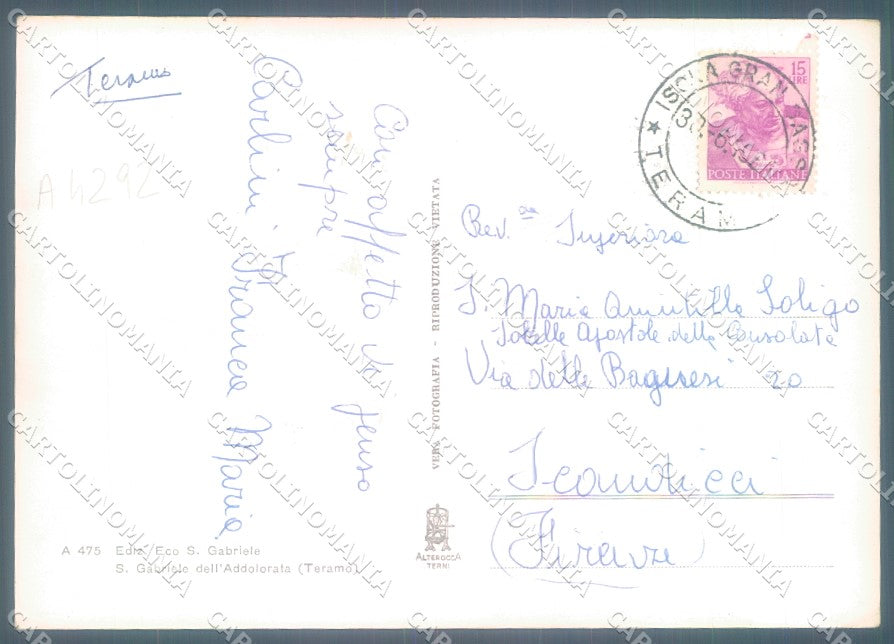 Teramo
A 4292
Con affetto vi penso
sempre
Carlini Franca Maria
VERA FOTOGRAFIA - RIPRODUZIONE VIETATA
15
LIRE
POSTE ITALIANE
ISOLA GRAN
★ TERAM
30.-6.
Rev.
Superiora
S. Maria Domitilla Soligo
Sorelle Apostole della Consolata
Via delle Bagnesi 20
Scandicci
(Firenze)
A 475 Ediz. Eco S. Gabriele
S. Gabriele dell'Addolorata (Teramo)
ALTEROCCA
TERNI
CARTOLINOMANIA